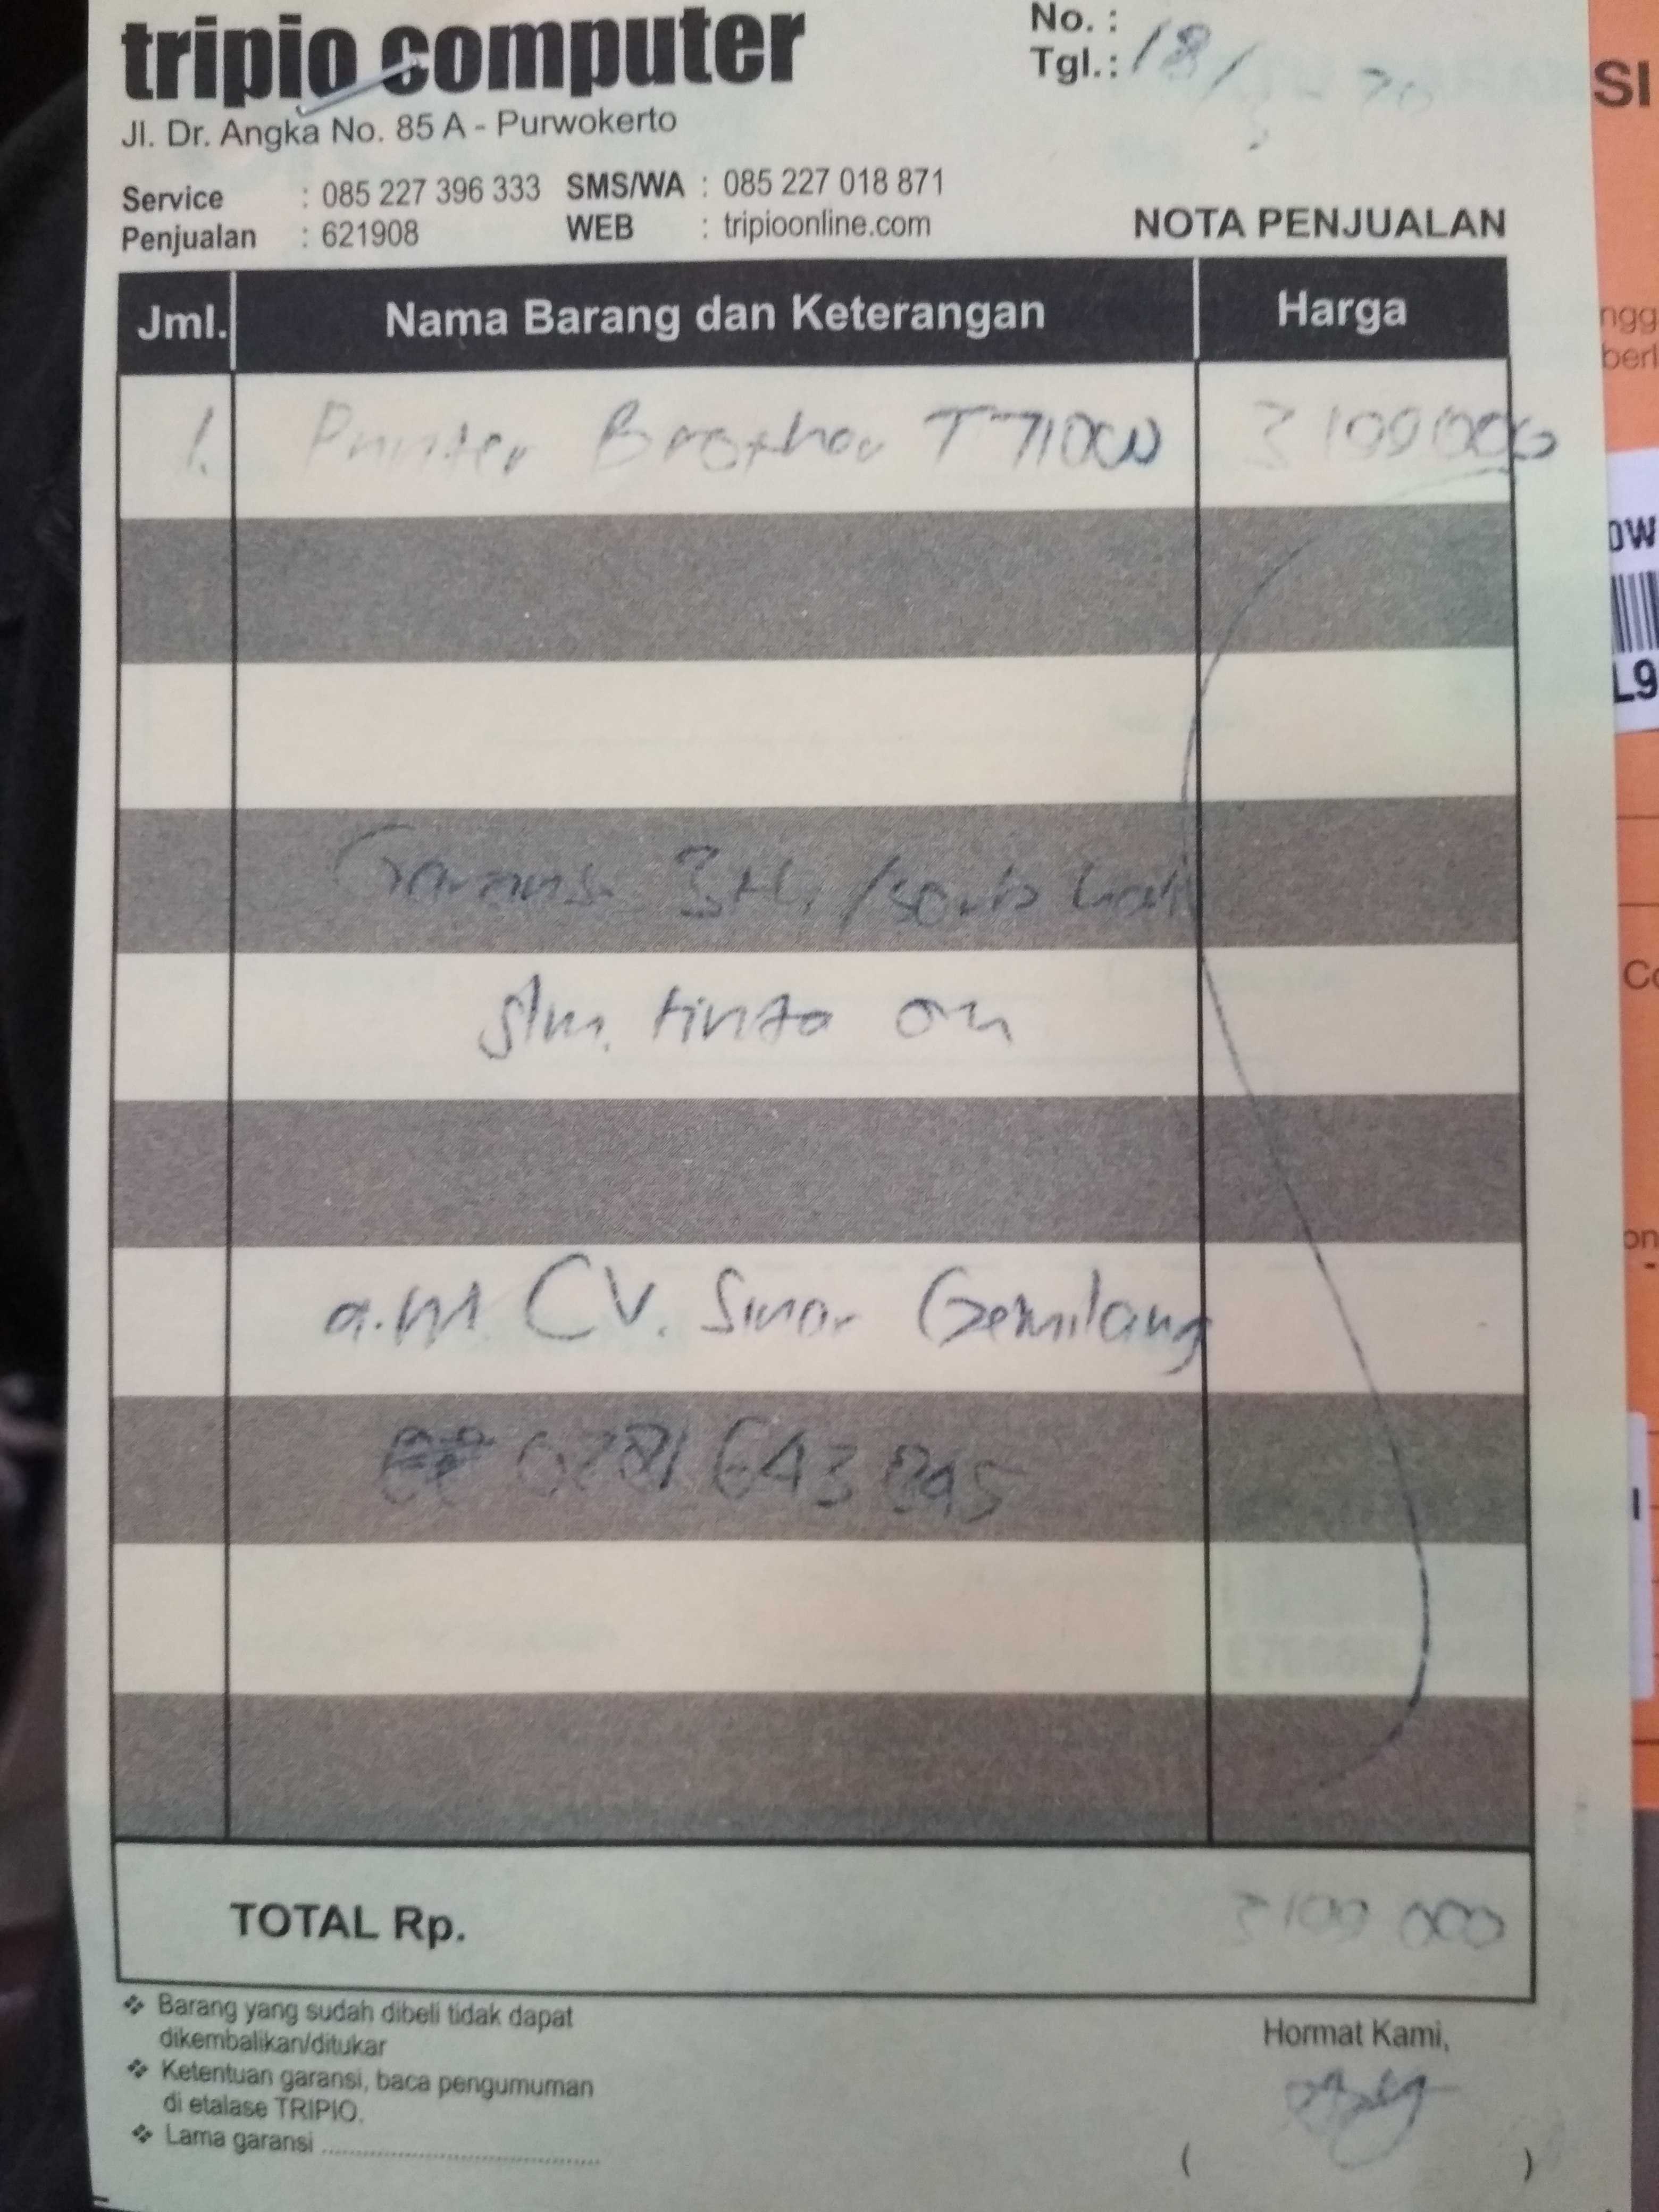 tripio computer
Jl. Dr. Angka No. 85 A - Purwokerto
No. :
Tgl.: 18/3 - 20
Service : 085 227 396 333 SMS/WA : 085 227 018 871
Penjualan : 621908 WEB : tripioonline.com
NOTA PENJUALAN
Jml. Nama Barang dan Keterangan Harga
1. Printer Brother T 7100W 3 199 000
Garansi 3th. /servis
tinta on
a.n CV. Sinar Gemilang
0281 643 895
TOTAL Rp. 3 199 000
❖ Barang yang sudah dibeli tidak dapat
dikembalikan/ditukar
❖ Ketentuan garansi, baca pengumuman
di etalase TRIPIO.
❖ Lama garansi
Hormat Kami,
( )
SI
ngg
berl
0W
L9
Co
on